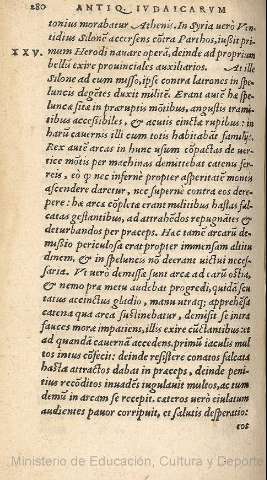 280 ANTIQ. IVDAICARVM
tonius morabatur Athenis. In Syria verò Ven-
tidius Silonẽ accersens cõtra Parthos, iussit pri-
XXV. mum Herodi nauare operã, deinde ad proprium
bellũ exire prouinciales auxiliarios. At ille
Silone ad eum misso, ipse contra latrones in spe-
luncis degẽtes duxit militẽ. Erant autẽ hæ spe-
luncæ sitæ in præruptis mõtibus, angustis trami-
tibus accessibiles, & acutis cinctæ rupibus: in
harũ cauernis illi cum totis habitabãt familijs.
Rex autẽ arcas in hunc usum cõpactas de ver-
tice mõtis per machinas demittebat catenis fer-
reis, eò q̃ nec infernè propter asperitatẽ montis
ascendere daretur, nec supernè contra eos dere-
pere: hæ arcæ cõpletæ erant militibus hastas fal-
catas gestantibus, ad attrahẽdos repugnãtes &
deturbandos per præceps. Hæc tamẽ arcarũ de-
missio periculosa erat propter immensam altitu
dinem, & in speluncis nõ deerant uictui neces-
saria. Vt verò demissæ sunt arcæ ad earũ ostia,
& nemo præ metu audebat progredi, quidã scu
tatus accinctus gladio, manu utraq; apprehẽsa
catena qua arca sustinebatur, demisit se intra
fauces moræ impatiens, illis exire cũctantibus: et
ad quandã cauernã accedens, primũ iaculis mul
tos intus cõfecit: deinde resistere conatos falcata
hasta attractos dabat in præceps, deinde peni-
tius recõditos inuadẽs iugulauit multos, ac tum
demũ in arcam se recepit. cæteros verò eiulatum
audientes pauor corripuit, et salutis desperatio:
eos
Ministerio de Educación, Cultura y Deporte